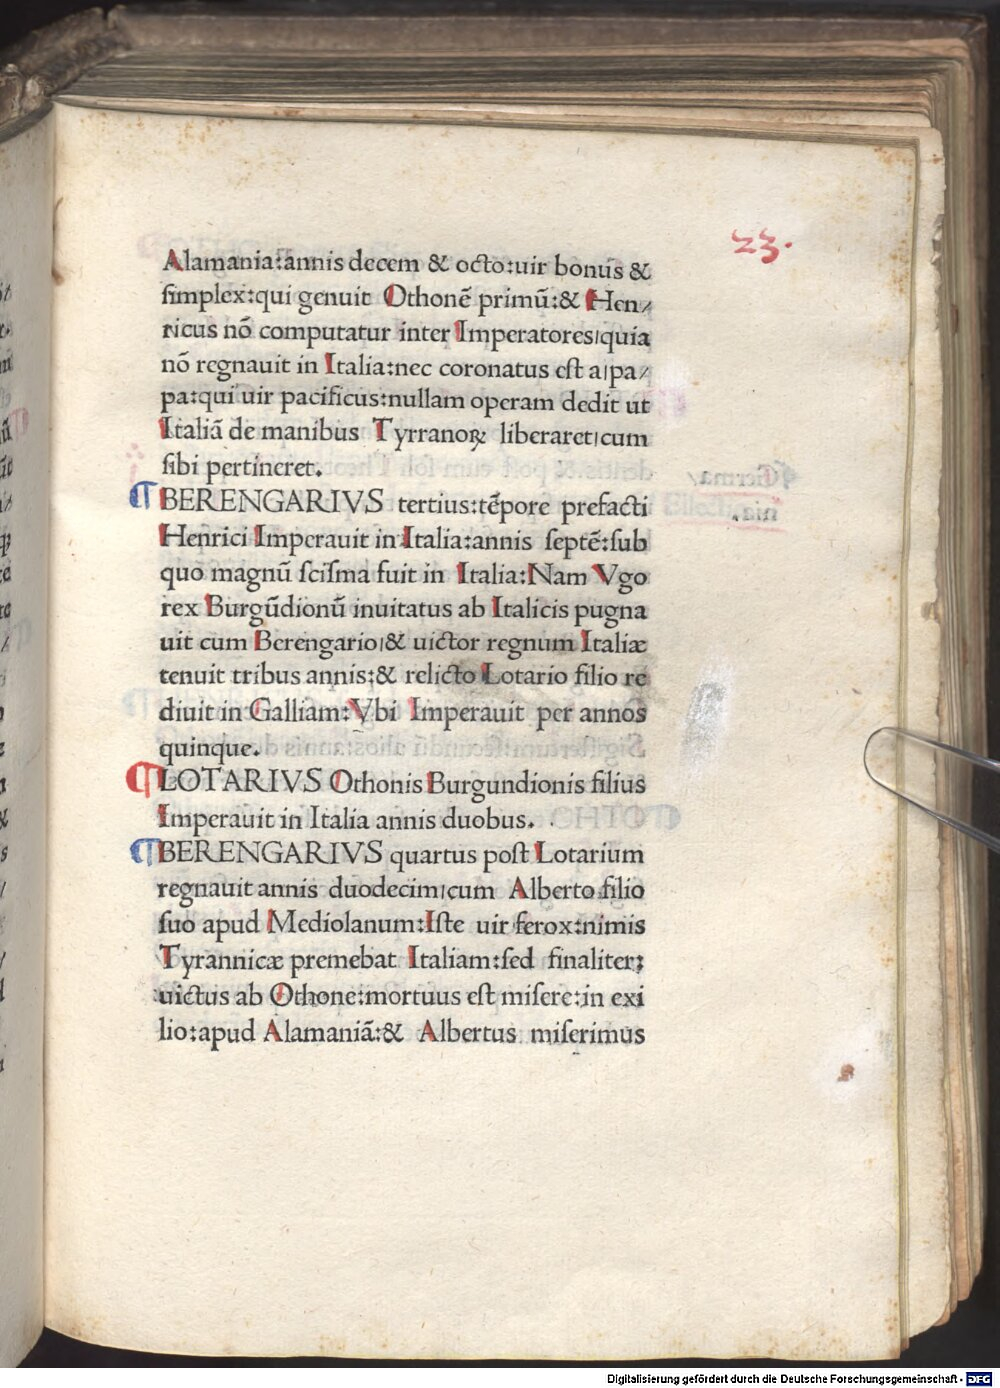 23.
Alamania:ãnnis decem & octo:uir bonus &
simplex:qui genuit Othonẽ primũ:& Hen/
ricus nõ computatur inter Imperatores/quia
nõ regnauit in Italia:nec coronatus est a/pa/
pa:qui uir pacificus:nullam operam dedit ut
Italiã de manibus Tyrranoꝝ liberaret/cum
sibi pertineret.
¶BERENGARIVS tertius:tẽpore prefacti
Henrici Imperauit in Italia:annis septẽ:sub
quo magnũ scisma fuit in Italia:Nam Vgo
rex Burgũdionũ inuitatus ab Italicis pugna
uit cum Berengario/& uictor regnum Italiæ
tenuit tribus annis:& relicto Lotario filio re
diuit in Galliam:Vbi Imperauit per annos
quinque.
¶LOTARIVS Othonis Burgundionis filius
Imperauit in Italia annis duobus.
¶BERENGARIVS quartus post Lotarium
regnauit annis duodecim/cum Alberto filio
suo apud Mediolanum:Iste uir ferox:nimis
Tyrannicæ premebat Italiam:sed finaliter:
uictus ab Othone:mortuus est misere:in exi
lio:apud Alamaniã:& Albertus miserimus
Digitalisierung gefördert durch die Deutsche Forschungsgemeinschaft - DFG